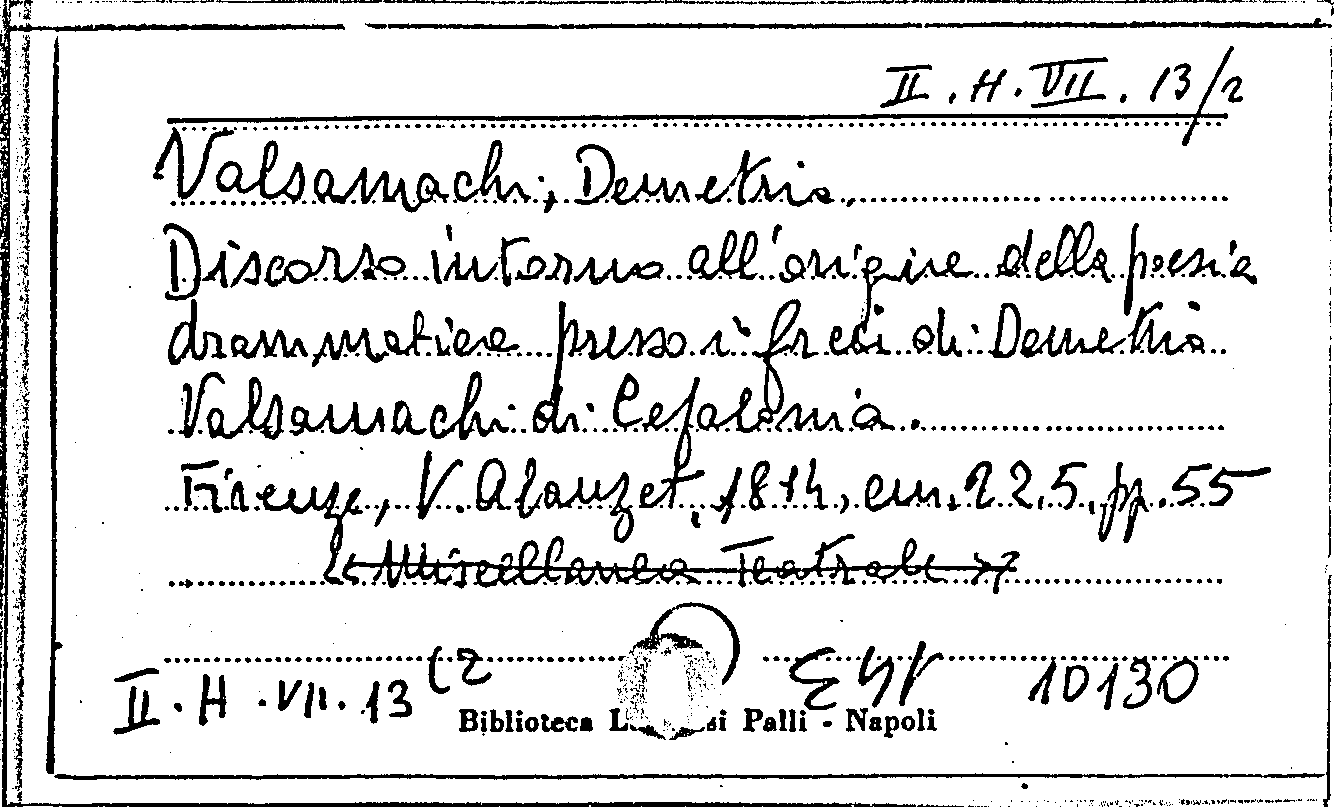 II. H. VII. 13/2
Valsamachi, Demetrio.
Discorso intorno all'origine della poesia
drammatica presso i greci di Demetrio
Valsamachi di Cefalonia.
Firenze, V. Alauzet, 1814, cm. 22,5, pp. 55
«Miscellanea Teatrale»
II. H. VII. 13 (2
10130
Biblioteca Palli - Napoli